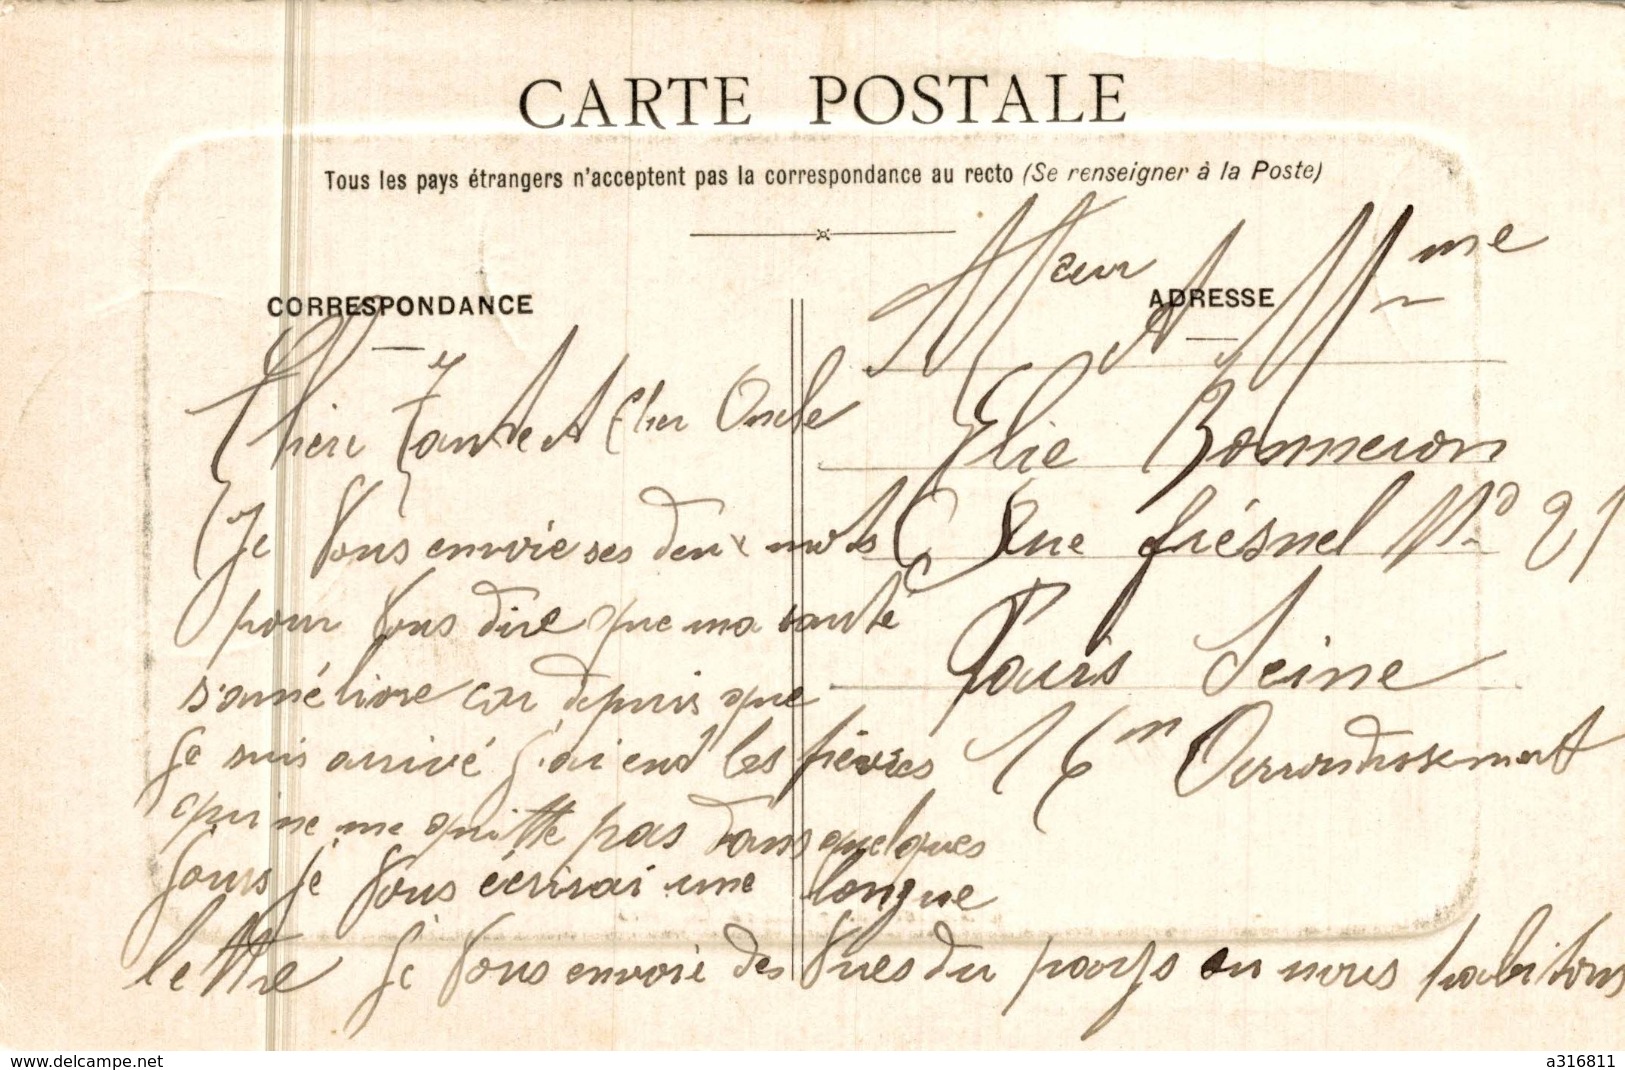 CARTE POSTALE
Tous les pays étrangers n'acceptent pas la correspondance au recto (Se renseigner à la Poste)
CORRESPONDANCE
Chère Tante et Cher Oncle
Je Vous envoie ses deux mots
pour Vous dire que ma santé
s'améliore car depuis que
je suis arrivé j'ai eud les fièvres
qui ne me quitte pas dans quelques
jours je Vous écrirai une longue
lettre je Vous envoie des Vues du pays ou nous habitons
ADRESSE
Mr et Mme
Elie Bonneron
Rue frésnel No 21
Paris Seine
16m Arrondissement
www.delcampe.net
a316811